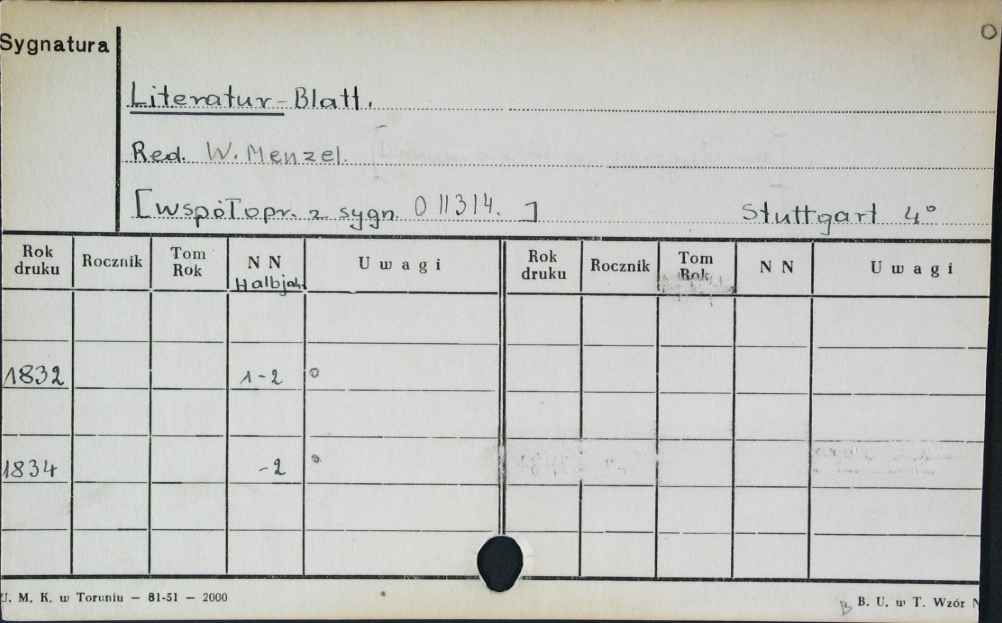 Sygnatura
Literatur-Blatt.
Red. W. Menzel.
[współopr. z sygn. 011314.]
Stuttgart 4°
Rok druku Rocznik Tom Rok N N Halbjah Uwagi Rok druku Rocznik Tom Rok N N Uwagi
1832 1-2 o
1834 -2 o
U. M. K. w Toruniu — 81-51 — 2000
B. U. w T. Wzór N